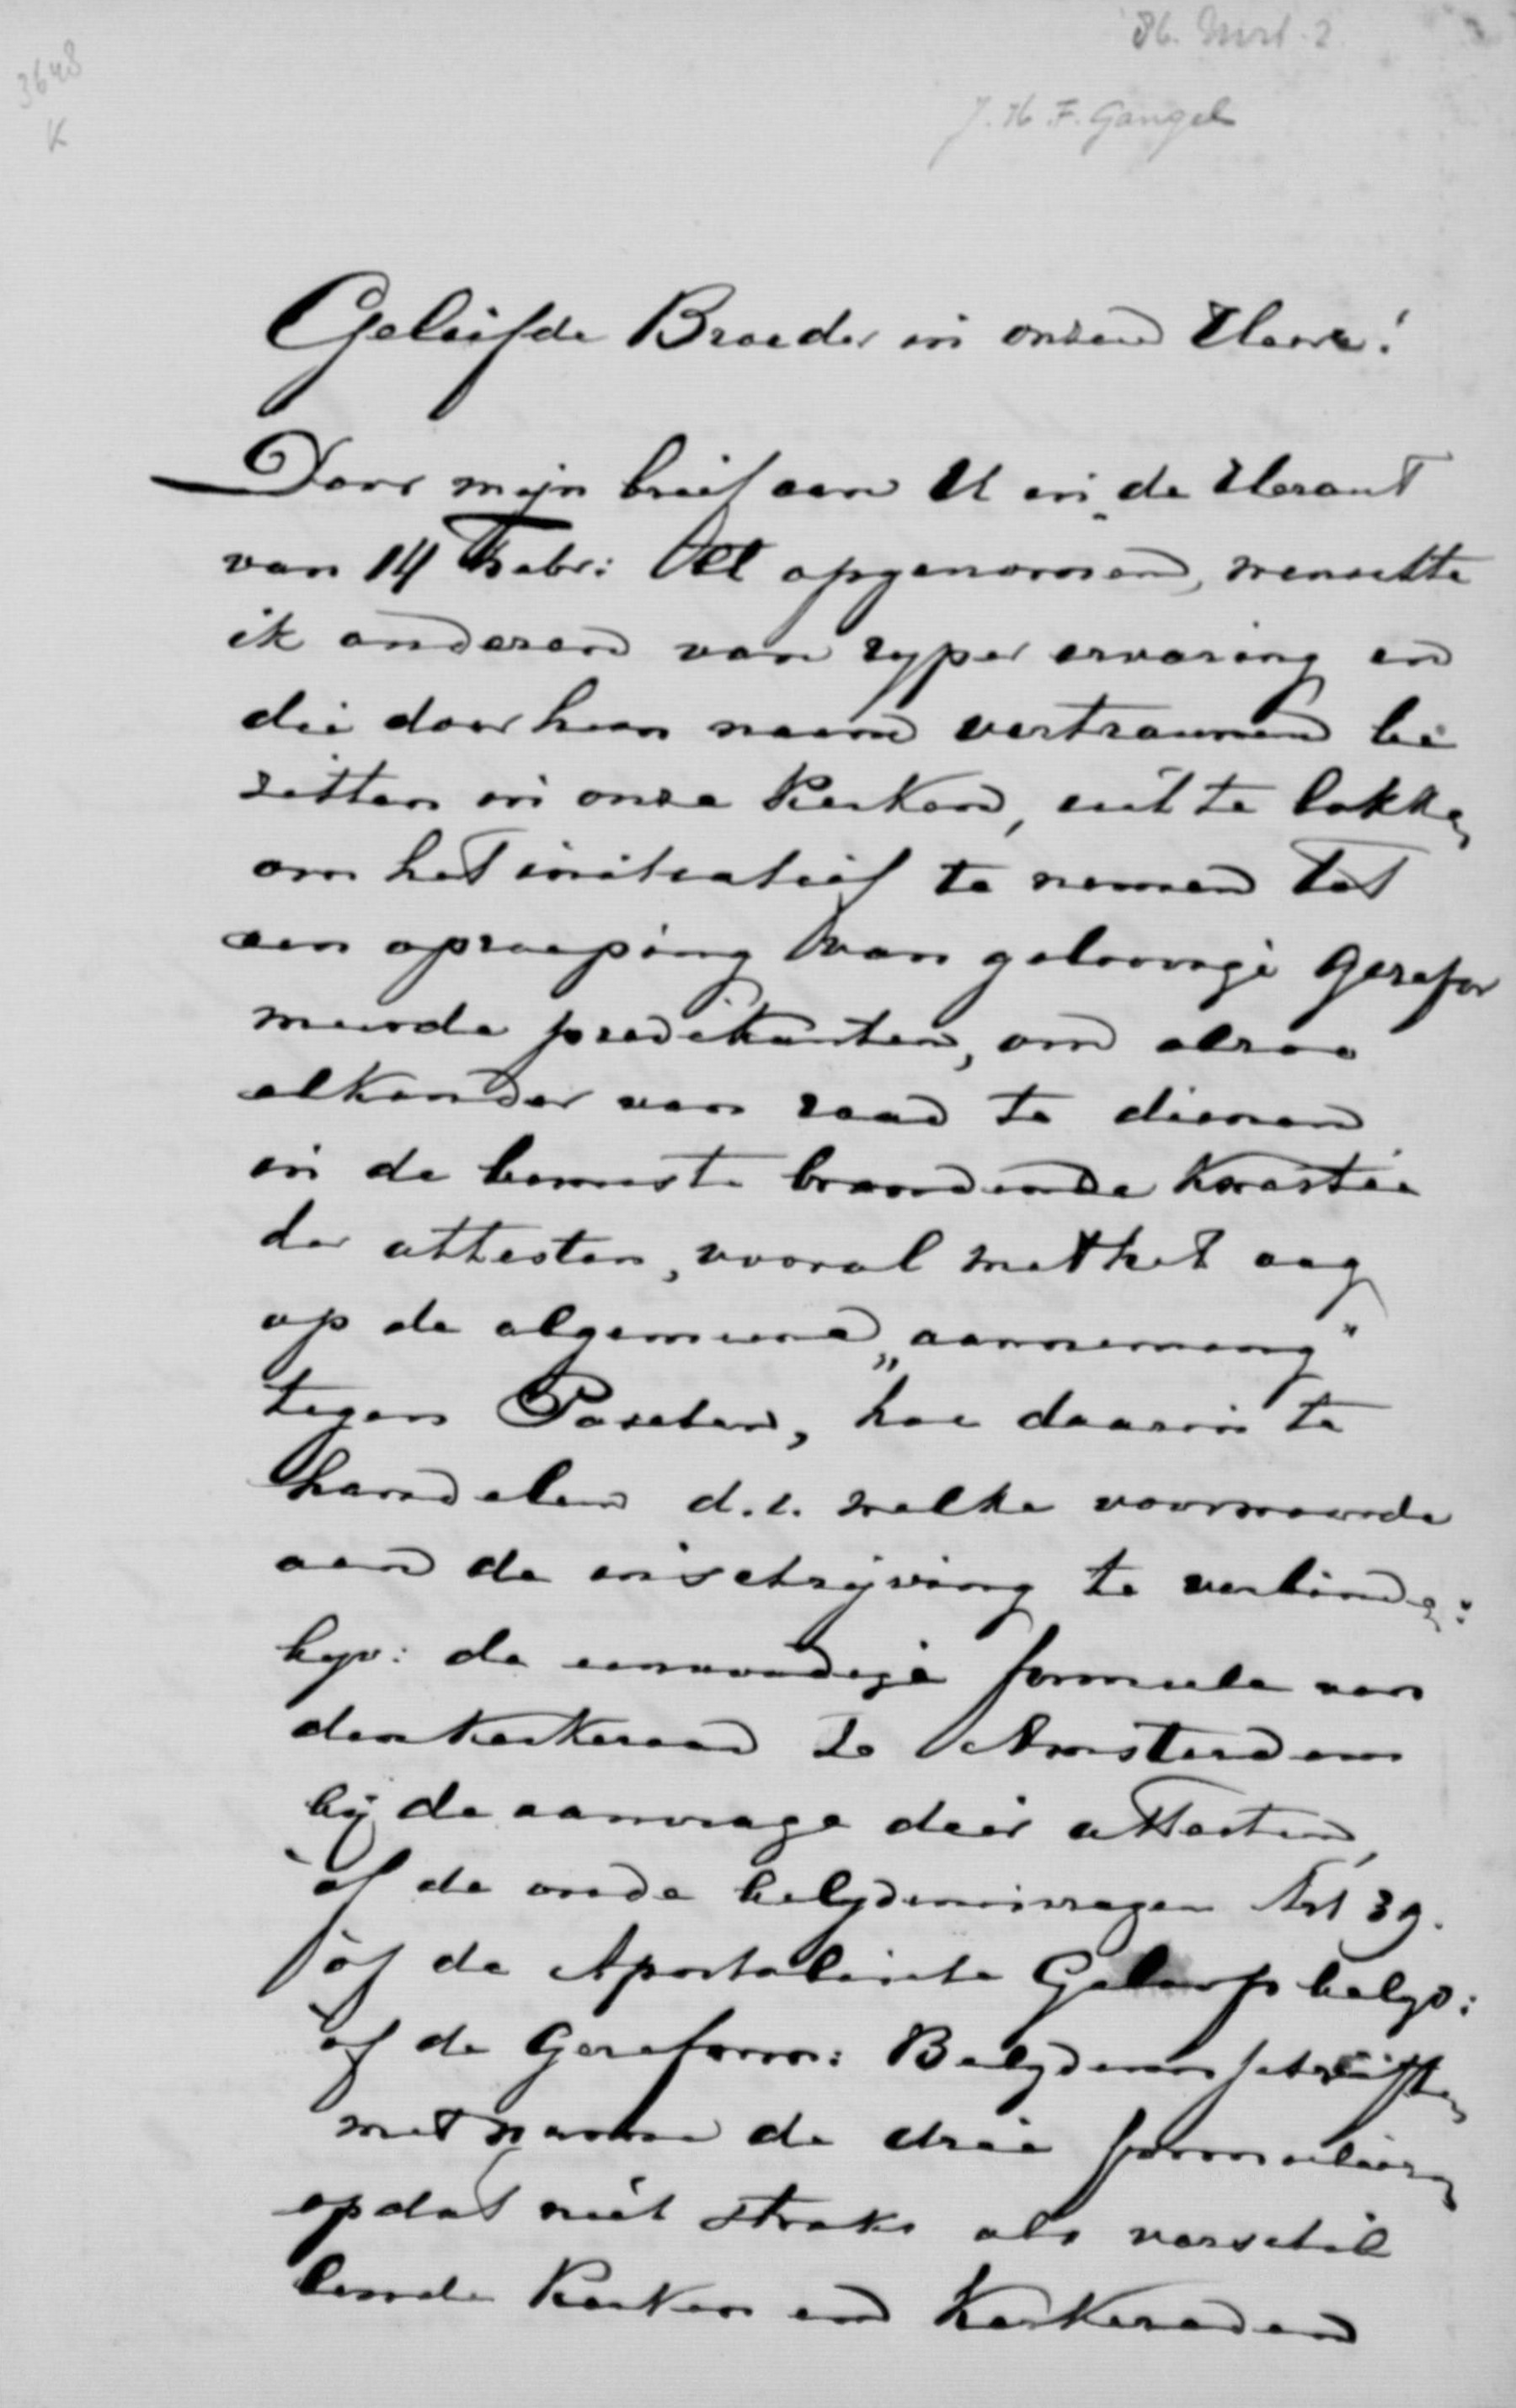 86. Mrt. 2.
3648
K
J. H. F. Gangel
Geliefde Broeder in onzen Heere!
Door mijn brief aan U in de Heraut
van 14 Febr: ll opgenomen, wenschte
ik anderen van ryper ervaring en
die door hun naam vertrouwen be
zitten in onze Kerken, uit te lokken
om het initiatief te nemen tot
een oproeping van geloovige Gerefor
meerde predikanten, om alzoo
elkander van raad te dienen
in de bewuste brandende kwestie
der attesten, vooral met het oog
op de algemeene „aanneming"
tegen Paschen, hoe daarin te
handelen d.i. welke voorwaarde
aan de inschrijving te verbinden:
byv: de eenvoudige formule van
den Kerkeraad te Amsterdam
bij de aanvrage dier attesten,
òf de oude belydenisvragen Art 39.
òf de Apostolische Geloofsbelyd:
òf de Gereform: Belydenisschriften
met name de drie formulieren
opdat niet straks als verschil
lende Kerken en Kerkeraden